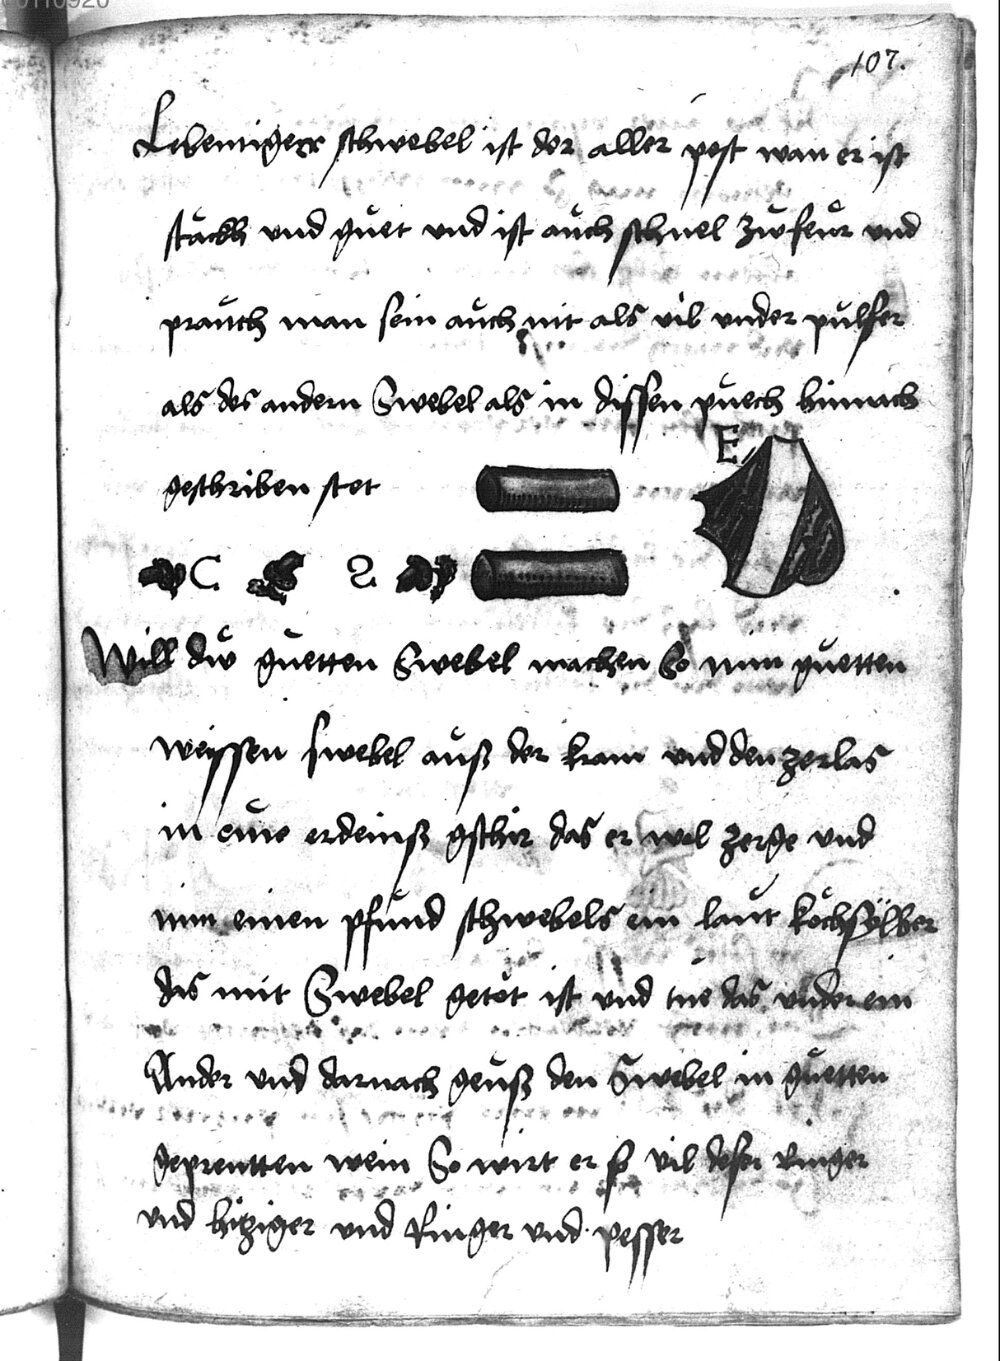 107.
Lebentigerr schwebel ist der aller pest wan er ist
stäckh und guet und ist auch schnel zu feur und
prauch man sein auch nit als vil under pulfer
als des andern Swebel als in dissen puech hinnach
geschriben stet
E
C 2
Will du guetten Swebel machen So nim guetten
weyssen swebel auß der kram und den zerlas
in eine erdeinß gschir das er wol zerge und
nim einen pfund schwebels ein laut kochsylber
das mit Swebel getöt ist und tue das under ein
Ander und darnach geuß den Swebel in guetten
geprentten wein So wirt er so vil deser ringer
und hitziger und Ringer und pesser